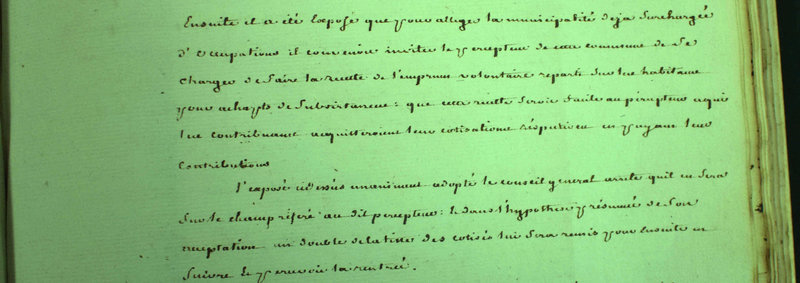 Ensuite il a été Exposé que pour alleger la municipalité deja Surchargée
d'occupations il convenoit inviter le percepteur de cette commune de Se
charger de faire la recette de l'emprunt volontaire reparti Sur les habitans
pour achapts de Subsistances: que cette recette Seroit facile au percepteur a qui
les contribuans acquitteroient leur cotisations respectives en payant leur
Contributions
l'exposé cidessus unaniment adopté le conseil general arrete quil en Sera
Sur le champ référé au dit percepteur: & dans l'hypothese présumée de Son
acceptation un double de la liste des cotisés lui Sera remis pour ensuite en
Suivre & percevoir la rentrée.